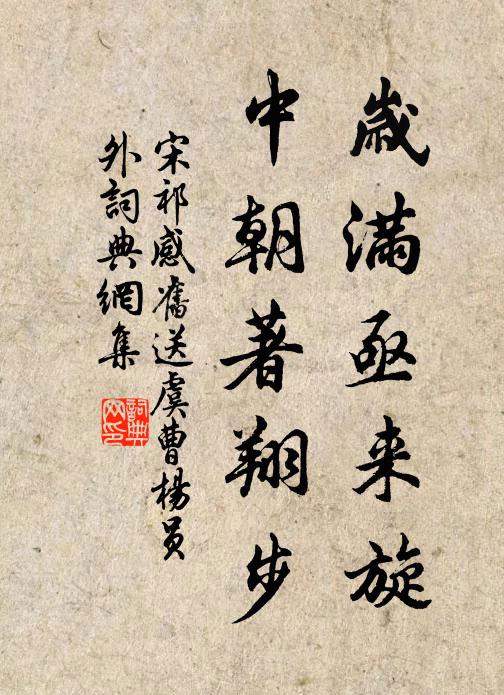 歲滿亟来旋
中朝著翔步
宋祁感舊送虞曹楊员
外詞典網集
詞典
网印